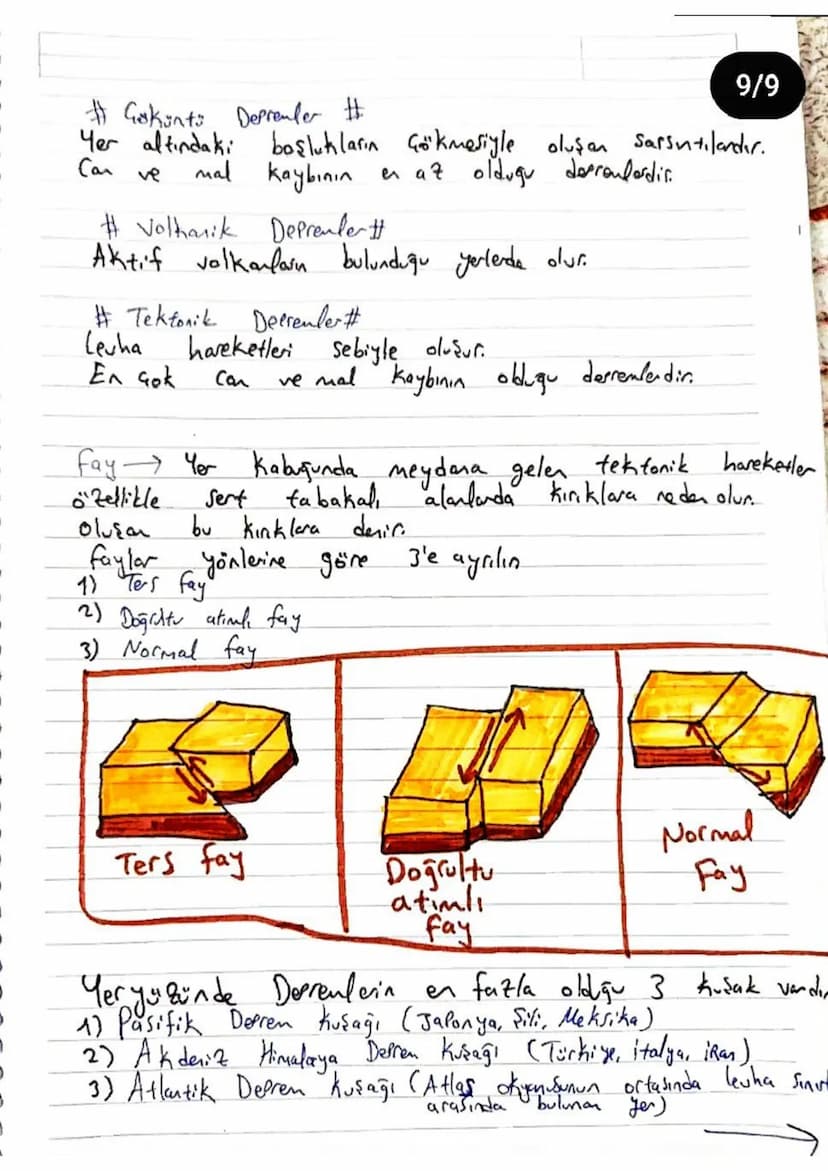 9/9
# Çöküntü Depremler #
Yer altındaki boşlukların Çökmesiyle oluşan sarsıntılardır.
Can ve mal kaybının en az olduğu depremlerdir.
# Volkanik Depremler #
Aktif volkanların bulunduğu yerlerde olur.
# Tektonik Depremler #
Levha hareketleri sebiyle oluşur.
En çok can ve mal kaybının olduğu depremlerdir.
Fay → Yer Kabuğunda meydana gelen tektonik hareketler
özellikle sert tabakalı alanlarda kırıklara neden olur.
Oluşan bu kırıklara denir.
Faylar yönlerine göre 3'e ayrılır
1) Ters fay
2) Doğrultu atımlı fay
3) Normal fay
Ters fay
Doğrultu
atımlı
fay
Normal
Fay
Yer yüzünde Depremlerin en fazla olduğu 3 kuşak vardır
1) Pasifik Deprem Kuşağı (Japonya, Şili, Meksika)
2) Akdeniz Himalaya Deprem Kuşağı (Türkiye, italya, iRan)
3) Atlantik Deprem Kuşağı (Atlas okyanusunun ortasında levha sınır
arasında bulunan yer)